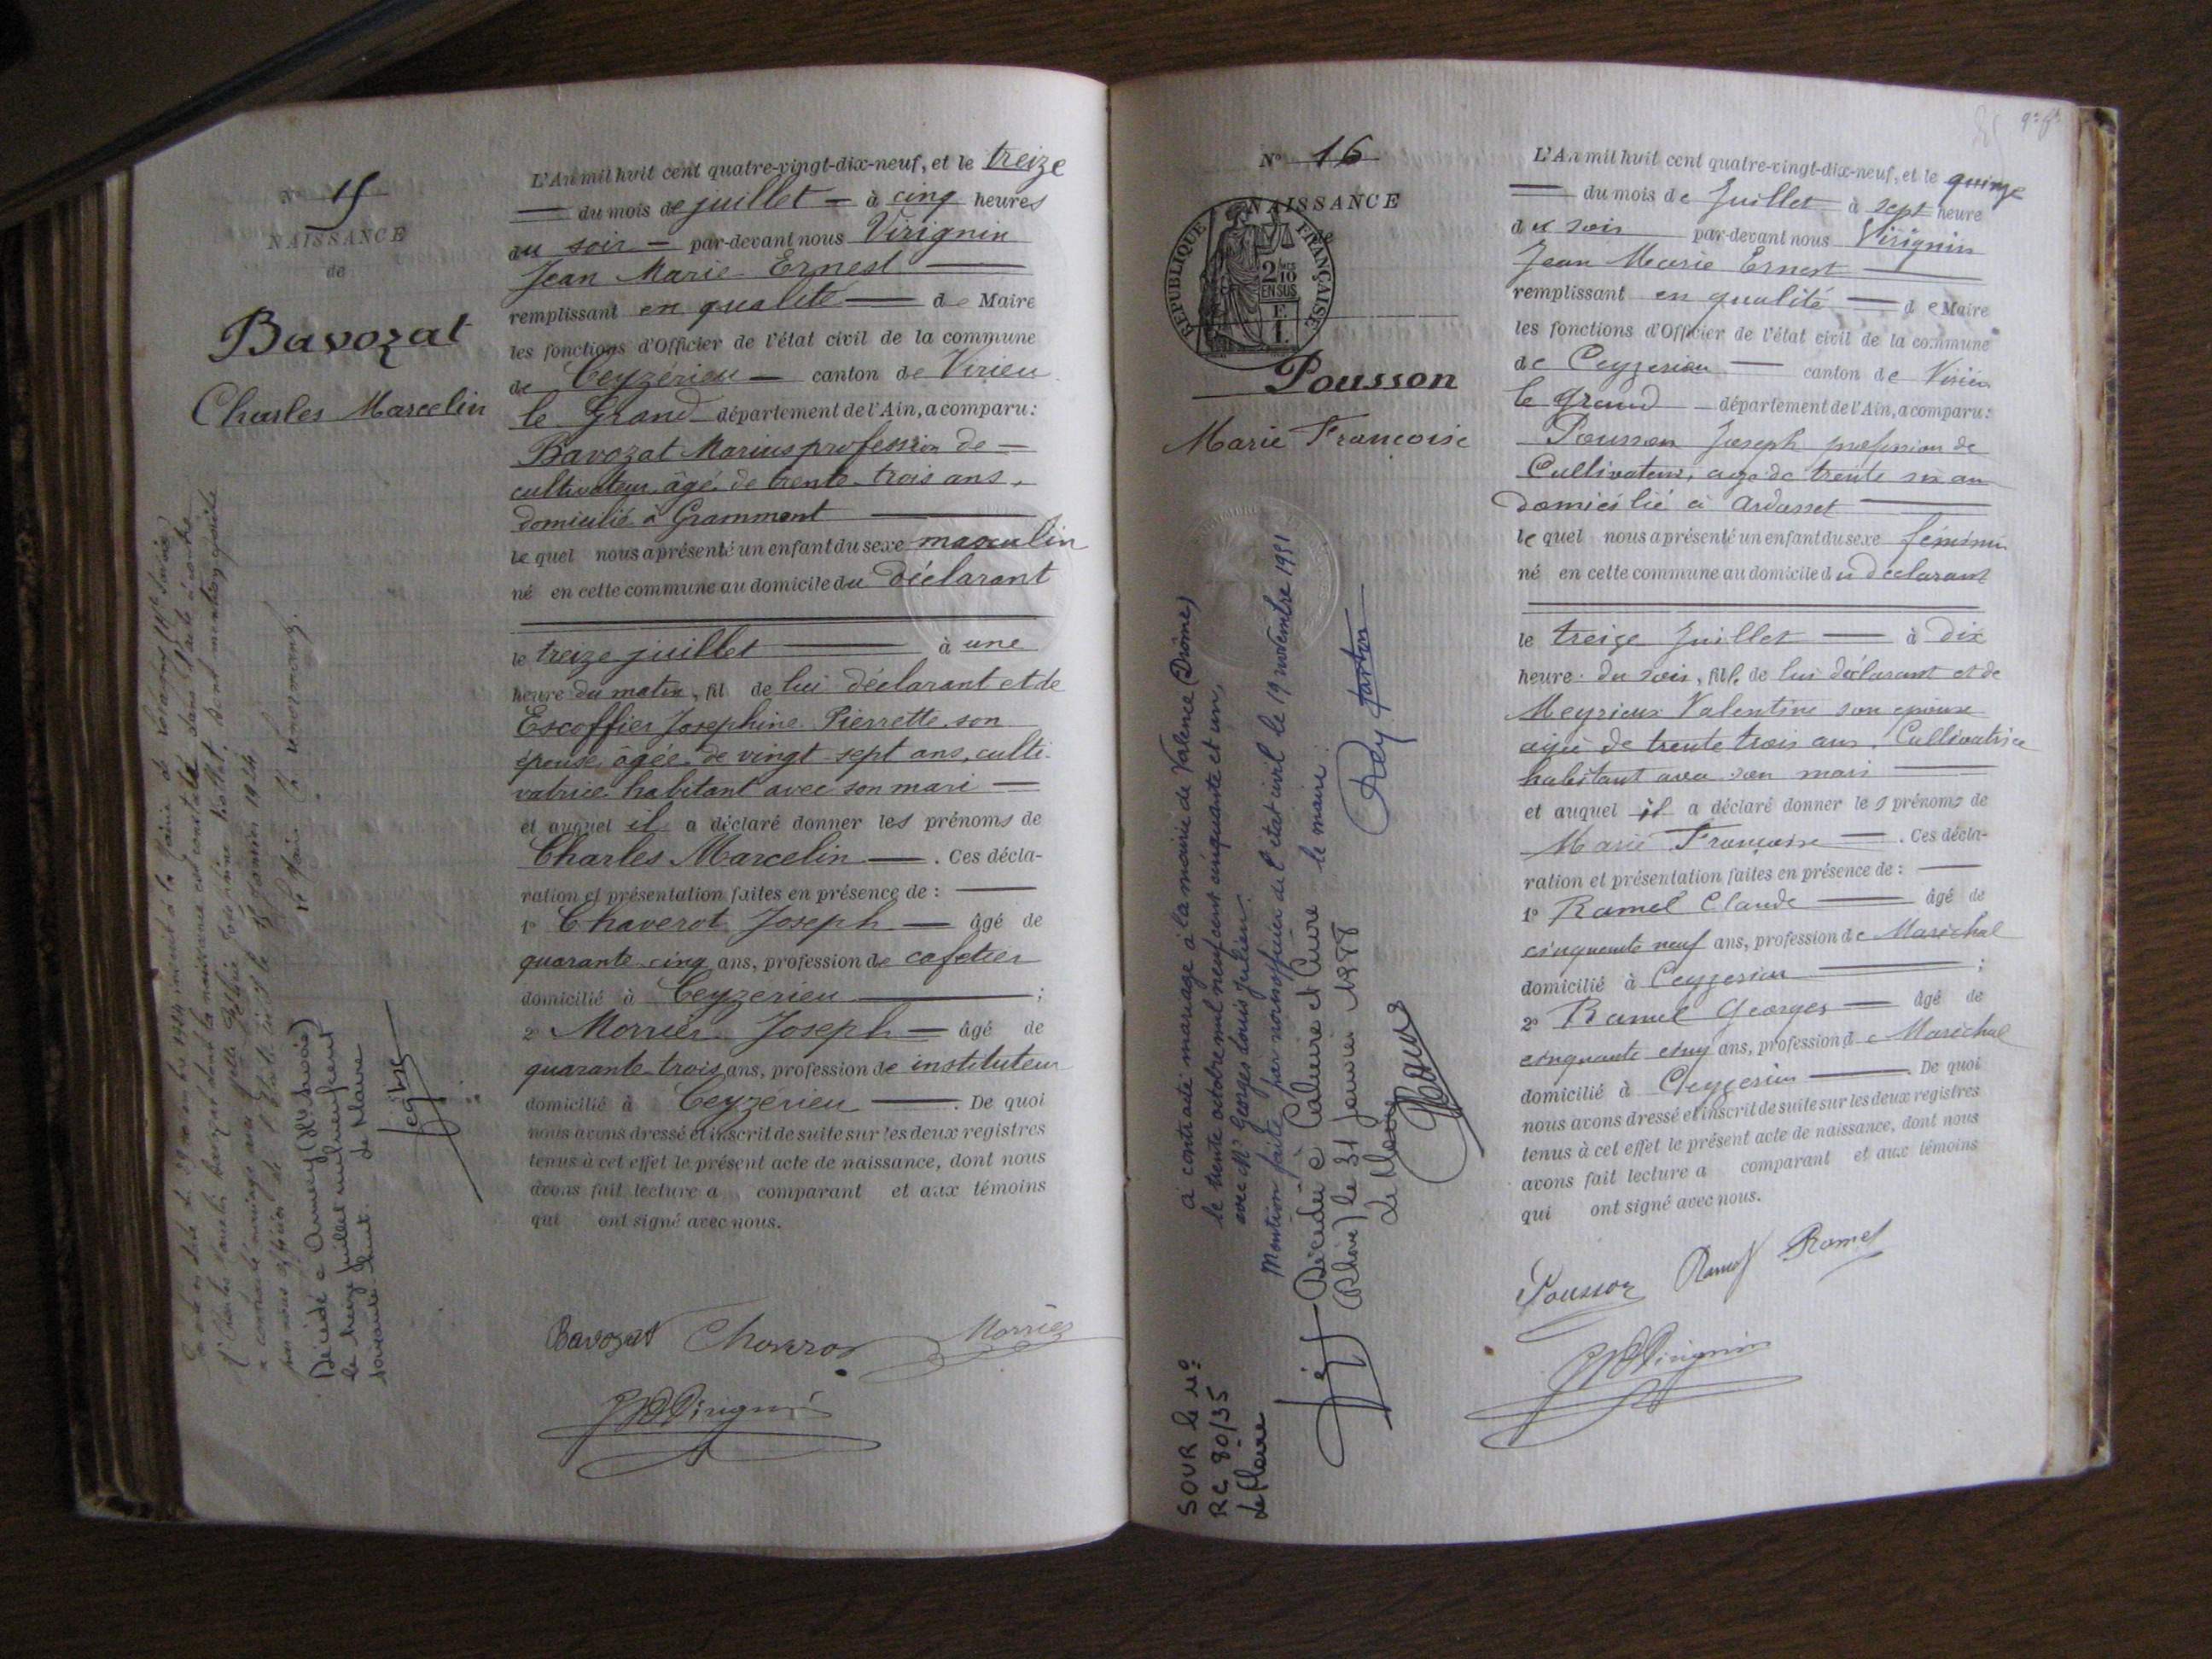 N° 15
NAISSANCE
de
Bavozat
Charles Marcelin
L'An mil huit cent quatre-vingt-dix-neuf, et le treize
du mois de juillet — à cinq heures
du soir — par-devant nous Virignin
Jean Marie Ernest
remplissant en qualité — de Maire
les fonctions d'Officier de l'état civil de la commune
de Ceyzérieu — canton de Virieu
le Grand département de l'Ain, a comparu:
Bavozat Marius profession de —
cultivateur âgé de trente-trois ans,
domicilié à Grammont
lequel nous a présenté un enfant du sexe masculin
né en cette commune au domicile du Déclarant
le treize juillet — à une
heure du matin, fil de lui déclarant et de
Escoffier Josephine Pierrette son
épouse âgée de vingt-sept ans, culti-
vatrice habitant avec son mari —
et auquel il a déclaré donner les prénoms de
Charles Marcelin — . Ces décla-
ration et présentation faites en présence de :
1° Chaverot Joseph — âgé de
quarante-cinq ans, profession de cafetier
domicilié à Ceyzerieu — ;
2° Morrier Joseph — âgé de
quarante-trois ans, profession de instituteur
domicilié à Ceyzérieu — . De quoi
nous avons dressé et inscrit de suite sur les deux registres
tenus à cet effet le présent acte de naissance, dont nous
avons fait lecture a comparant et aux témoins
qui ont signé avec nous.
Bavozat
Décédé à Annecy (Hte Savoie)
le treize juillet mil neuf cent
soixante huit. Le Maire
N° 16
NAISSANCE
de
RÉPUBLIQUE FRANÇAISE
2/10 EN SUS
Pousson
Marie Françoise
L'An mil huit cent quatre-vingt-dix-neuf, et le quinze
du mois de Juillet à sept heure
du soir par-devant nous Virignin
Jean Marie Ernest
remplissant en qualité — de Maire
les fonctions d'Officier de l'état civil de la commune
de Ceyzerieu — canton de Virieu
le Grand — département de l'Ain, a comparu:
Pousson Joseph profession de
Cultivateur, age de trente six an
domicilié à Ardosset
lequel nous a présenté un enfant du sexe féminin
né en cette commune au domicile du déclarant
le treize Juillet — à dix
heure du soir, fille de lui déclarant et de
Meyrieux Valentine son epouse
agée de trente trois ans. Cultivatrice
habitant avec son mari
et auquel il a déclaré donner les prénoms de
Marie Françoise — . Ces décla-
ration et présentation faites en présence de :
1° Ramel Claude — âgé de
cinquante neuf ans, profession de Maréchal
domicilié à Ceyzerieu — ;
2° Ramel Georges — âgé de
cinquante cinq ans, profession de Maréchal
domicilié à Ceyzerieu — . De quoi
nous avons dressé et inscrit de suite sur les deux registres
tenus à cet effet le présent acte de naissance, dont nous
avons fait lecture a comparant et aux témoins
qui ont signé avec nous.
Pousson Ramel Ramel
a contracté mariage à la mairie de Valence (Drôme)
le trente octobre mil neuf cent cinquante et un,
avec Mr Georges Louis Julien.
Mention faite par nous officier de l'état civil le 19 novembre 1951
le maire
Décédée à Caluire et Cuire
(Rhône) le 31 Janvier 1988
Le Maire
SOUR le n°
RC 80/35
Le Maire